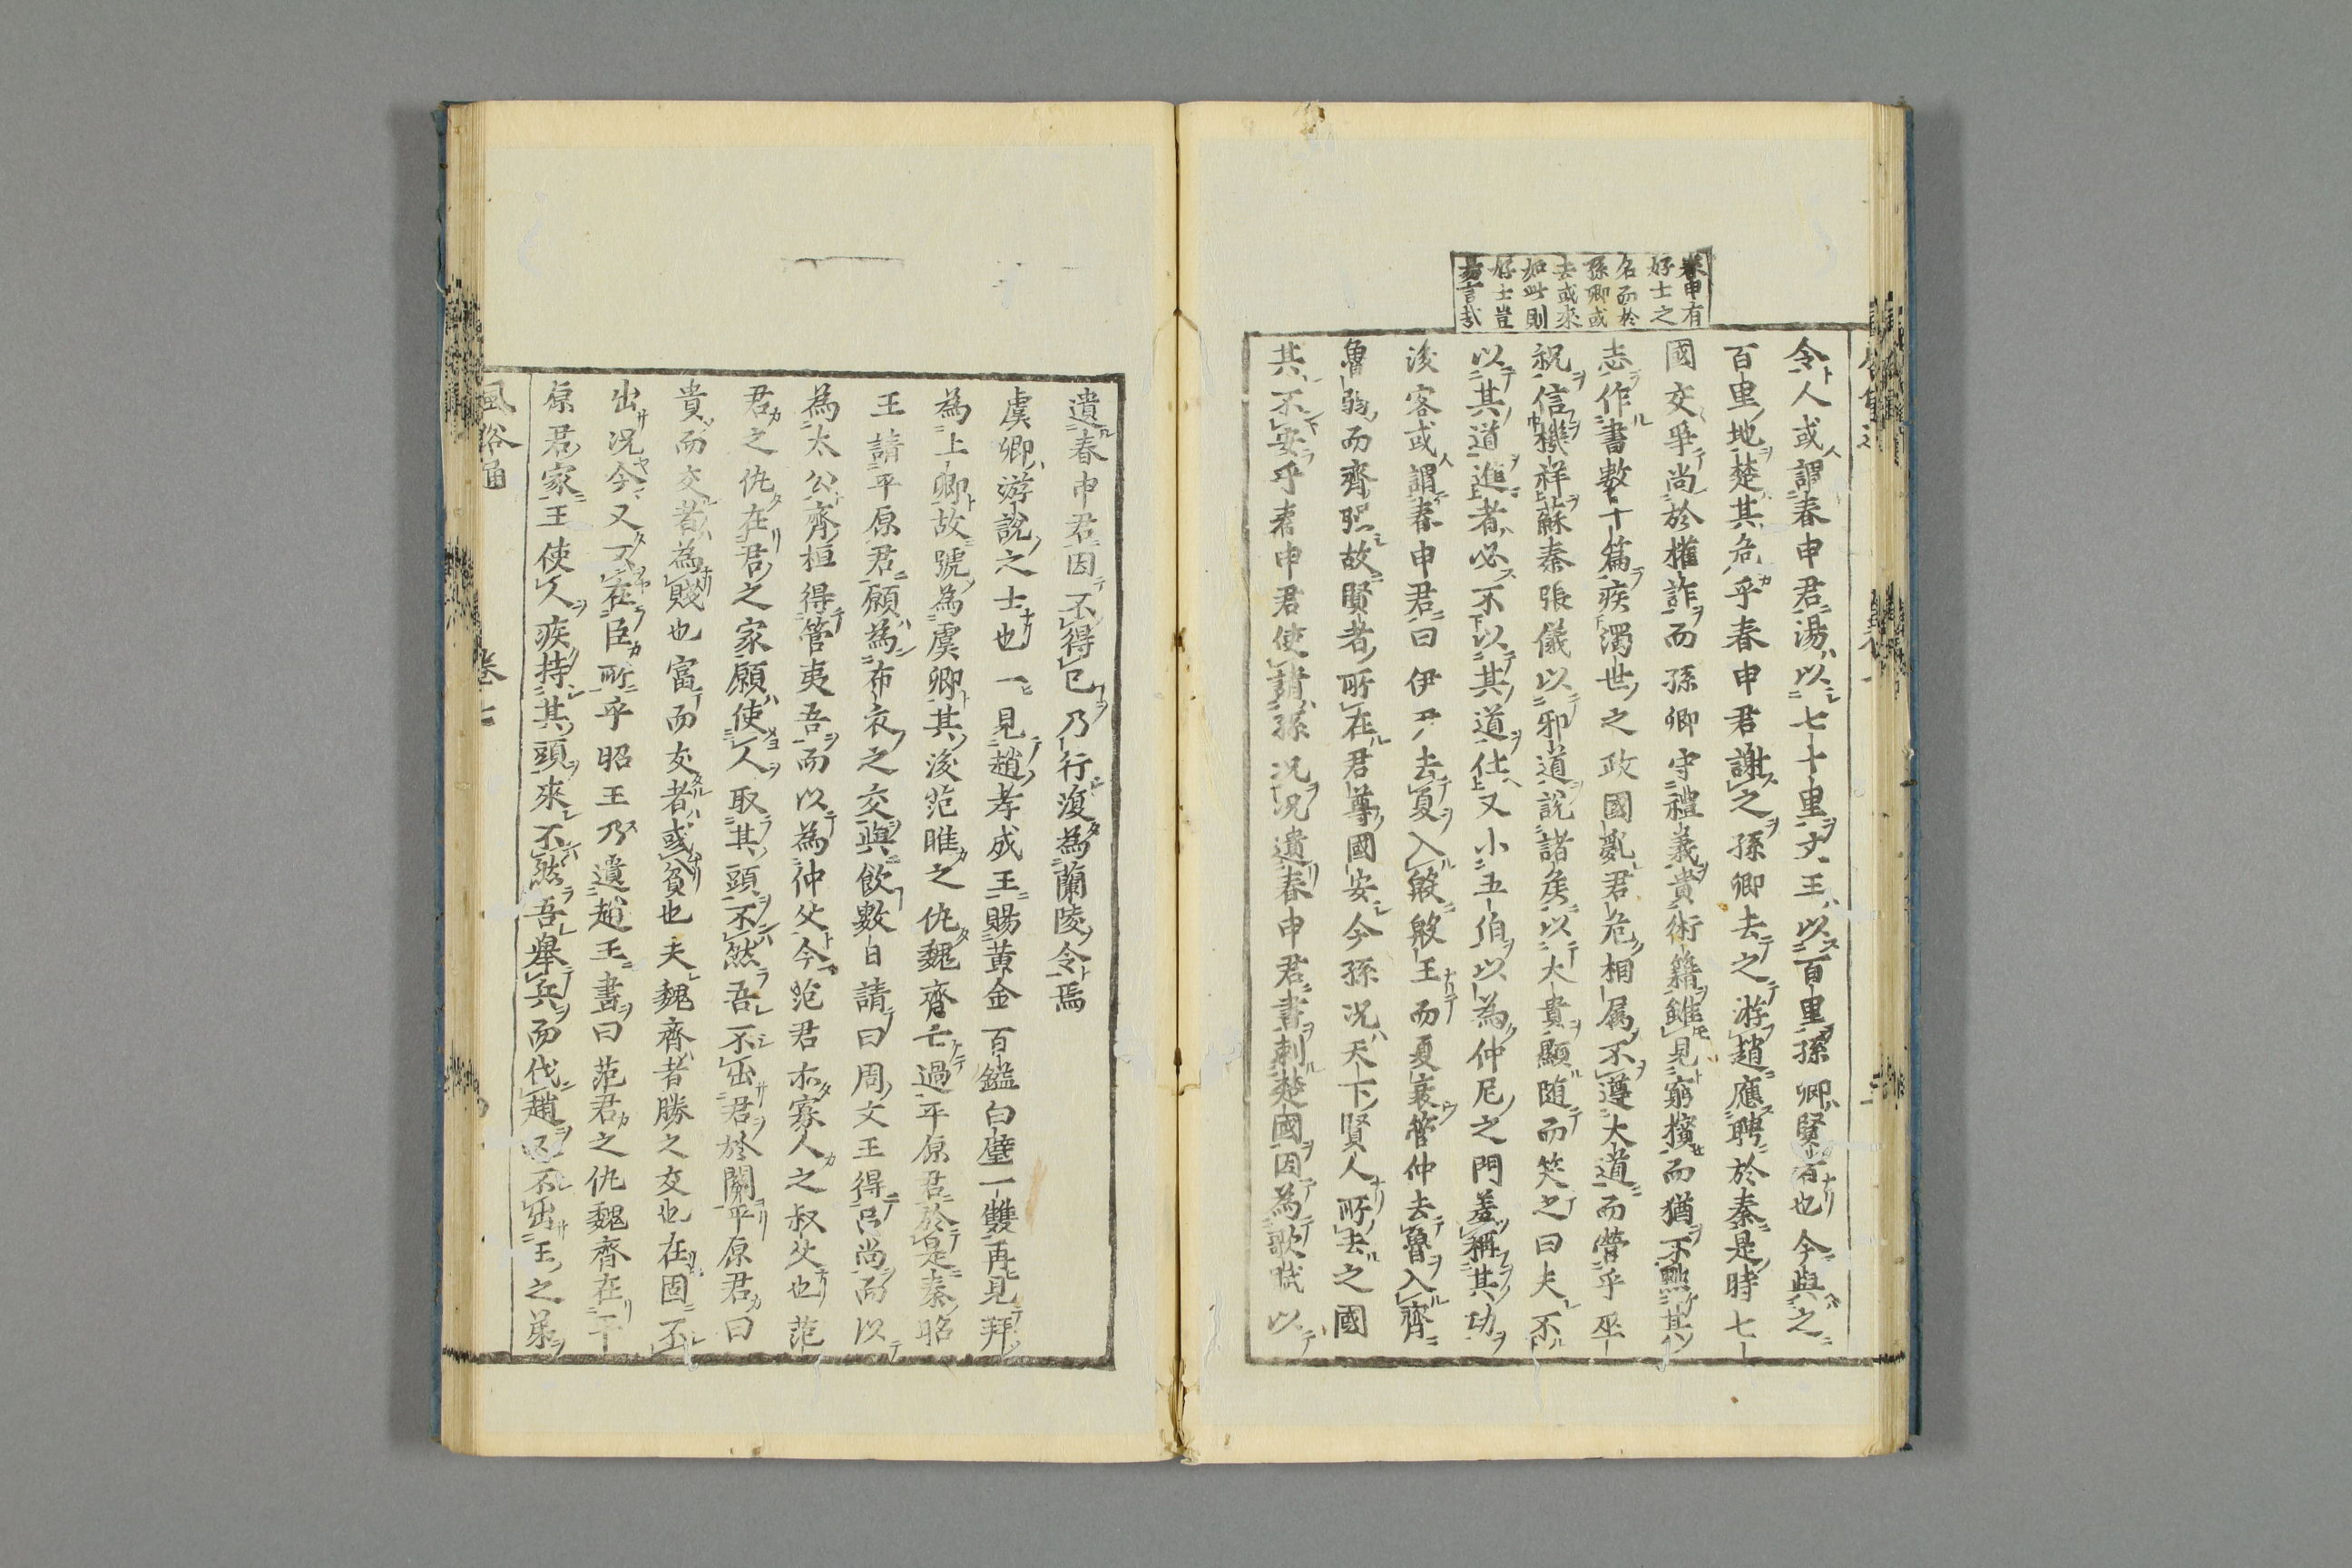 春申有
好士之
名而於
孫卿或
去或來
如此則
好士豈
易言哉
令人或謂春申君湯以七十里文王以百里孫卿賢者也今與之
百里地楚其危乎春申君謝之孫卿去之游趙應聘於秦是時七
國交爭尚於權詐而孫卿守禮義貴術籍雖見窮擯而猶不黜其
志作書數十篇疾濁世之政國亂君危相屬不遵大道而營乎巫
祝信機祥蘇秦張儀以邪道說諸侯以大貴顯随而笑之曰夫不
以其道進者必不以其道仕又小五伯以為仲尼之門羞稱其功
後客或謂春申君曰伊尹去夏入殷殷王而夏衰管仲去魯入齊
魯弱而齊強故賢者所在君尊國安今孫况天下賢人所去之國
其不安乎春申君使請孫况况遺春申君書刺楚國因為歌賦以
遺春申君因不得已乃行復為蘭陵令焉
虞卿游說之士也一見趙孝成王賜黃金百鎰白璧一雙再見拜
為上卿故號為虞卿其後范睢之仇魏齊亡過平原君於是秦昭
王請平原君願為布衣之交與飲數日請曰周文王得呂尚而以
為太公齊桓得管夷吾而以為仲父今范君亦寡人之叔父也范
君之仇在君之家願使人取其頭不然吾不出君於關平原君曰
貴而交者為賤也富而交者或貧也夫魏齊者勝之交也在固不
出况今又不在臣所乎昭王乃遺趙王書曰范君之仇魏齊在平
原君家王使人疾持其頭來不然吾舉兵而伐趙又不出王之弟
風俗通 卷七